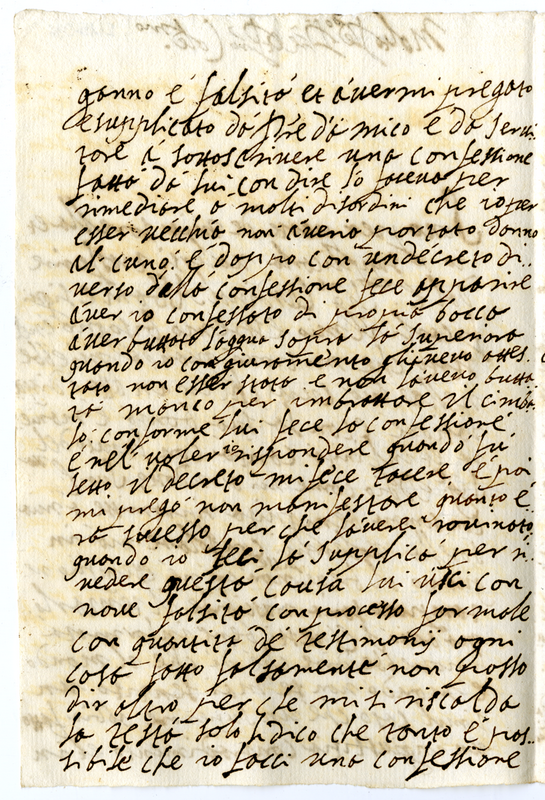 ganno é falsitá et avermi pregato
e supplicato dá Pre dá mico é da servi
tore á sottoscrivere una confessione
fatta dá lui con dire lo faceva per
rimediare a molti disordini che io per
esser vecchia non averia portato danno
al cuno. é doppo con un decreto di
verso dalá confessione fece apparire
aver io confessato di propia bocca
aver buttato l'aqqua sopra lá superiora
quando io con giuramento gli avevo attes
tato non esser stata e non l'avevo butta
tá manco per imbrattare il cimba
lo. conforme lui fece lo confessione
e nel voler rispondere quando fú
letto il decreto mi fece tacere é poi
mi pregó non manifestare quanto é
rá sucesso per che l'averei rovinato
quando io feci lá supplica per ri
vedere questa causa lui uscí con
nove falsitá con processo formale
con quantitá de testimonij ogni
cosa fatto falsamente non posso
dir altro per che mi si riscalda
la testa solo li dico che tanto é pos
sibile che io facci una confessione